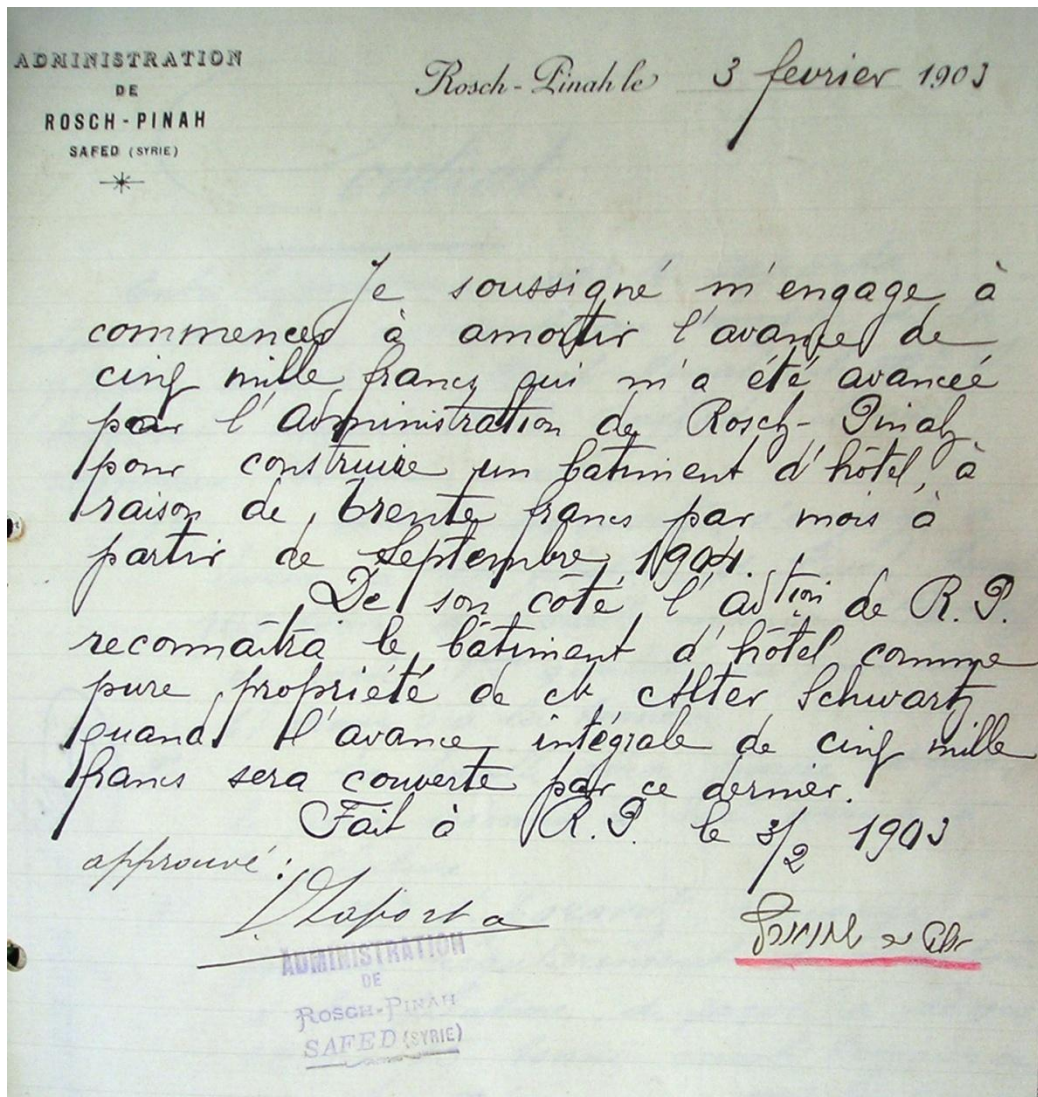 ADMINISTRATION
DE
ROSCH-PINAH
SAFED (SYRIE)
Rosch-Pinah le 3 fevrier 1903
Je soussigné m'engage à
commencer à amortir l'avance de
cinq mille francs qui m'a été avancée
par l'administration de Rosch-Pinah
pour construire un bâtiment d'hôtel, à
raison de trente francs par mois à
partir de Septembre 1904.
De son côté, l'adtion de R. P.
reconnaîtra le bâtiment d'hôtel comme
pure propriété de Alter Schwartz
quand l'avance intégrale de cinq mille
francs sera couverte par ce dernier.
Fait à R. P. le 3/2 1903
approuvé:
ADMINISTRATION
DE
ROSCH-PINAH
SAFED (SYRIE)